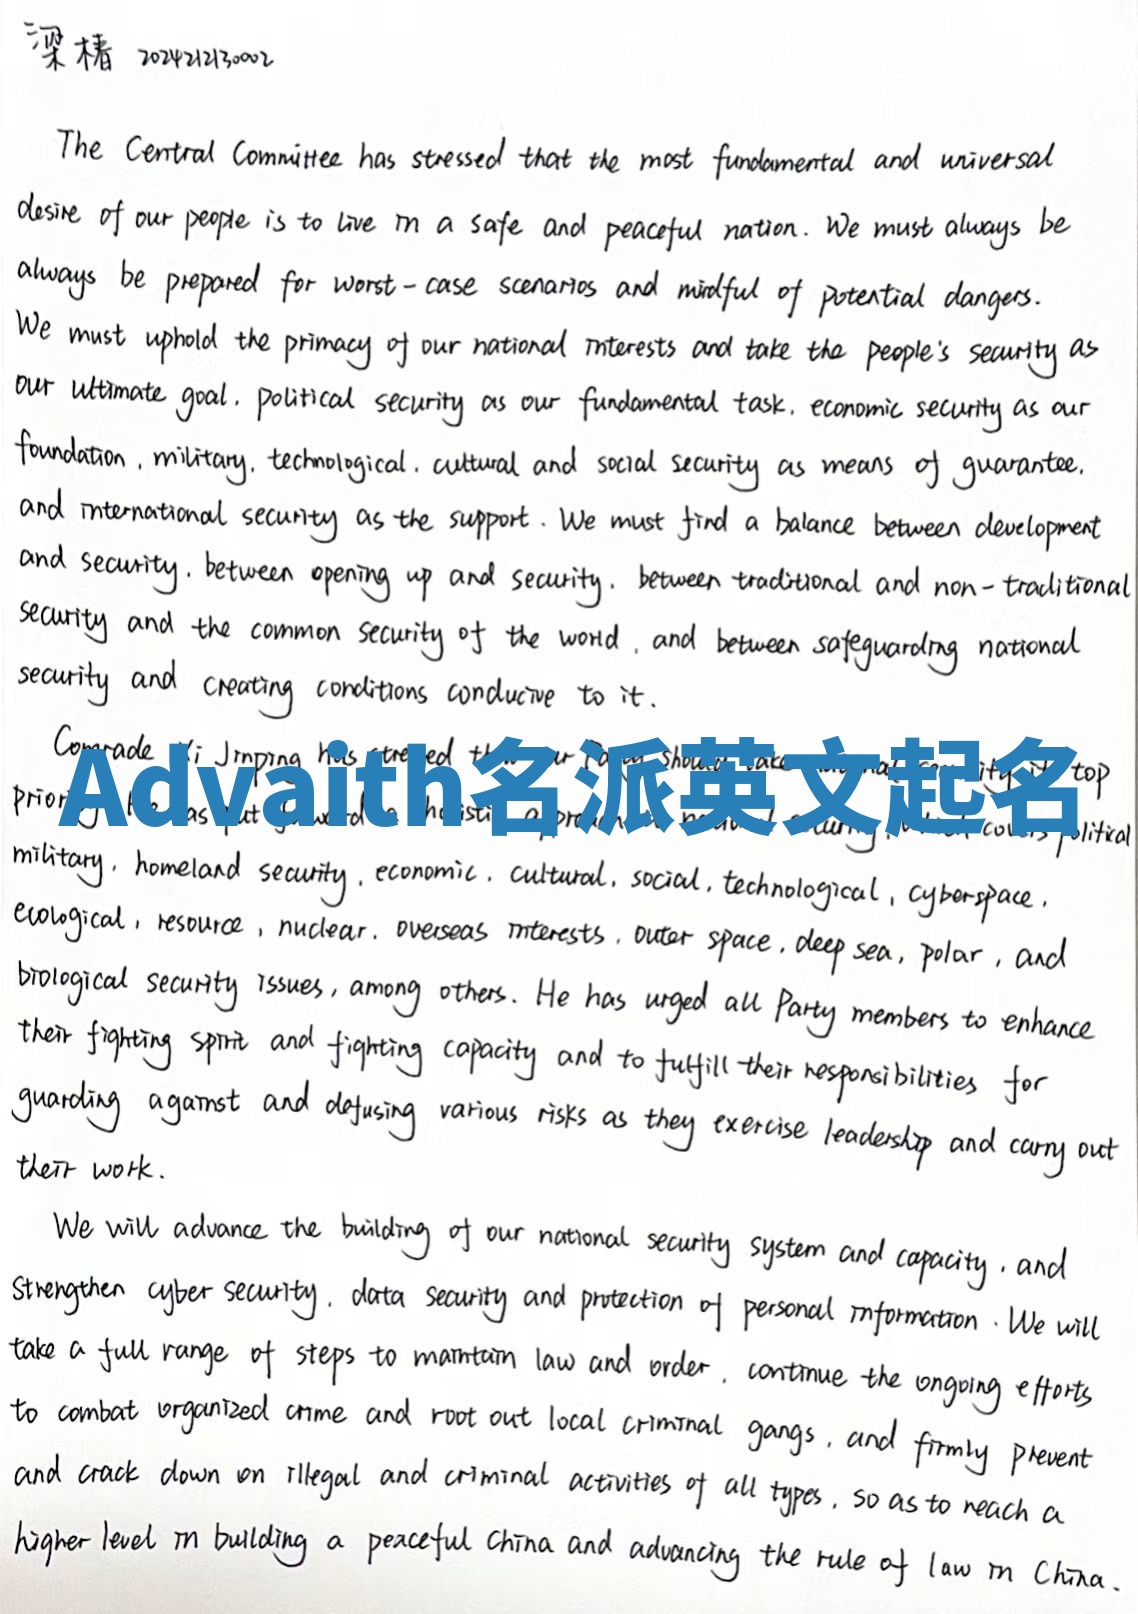 梁椿 2024212130002
The Central Committee has stressed that the most fundamental and universal
desire of our people is to live in a safe and peaceful nation. We must always be
always be prepared for worst-case scenarios and mindful of potential dangers.
We must uphold the primacy of our national interests and take the people's security as
our ultimate goal, political security as our fundamental task, economic security as our
foundation, military, technological, cultural and social security as means of guarantee,
and international security as the support. We must find a balance between development
and security, between opening up and security, between traditional and non-traditional
security and the common security of the world, and between safeguarding national
security and creating conditions conducive to it.
Comrade Xi Jinping has stressed our Party should take top
Advaith名派英文起名
put covers political
military, homeland security, economic, cultural, social, technological, cyberspace,
ecological, resource, nuclear, overseas interests, outer space, deep sea, polar, and
biological security issues, among others. He has urged all Party members to enhance
their fighting spirit and fighting capacity and to fulfill their responsibilities for
guarding against and defusing various risks as they exercise leadership and carry out
their work.
We will advance the building of our national security system and capacity, and
strengthen cyber security, data security and protection of personal information. We will
take a full range of steps to maintain law and order, continue the ongoing efforts
to combat organized crime and root out local criminal gangs, and firmly prevent
and crack down on illegal and criminal activities of all types, so as to reach a
higher level in building a peaceful China and advancing the rule of law in China.